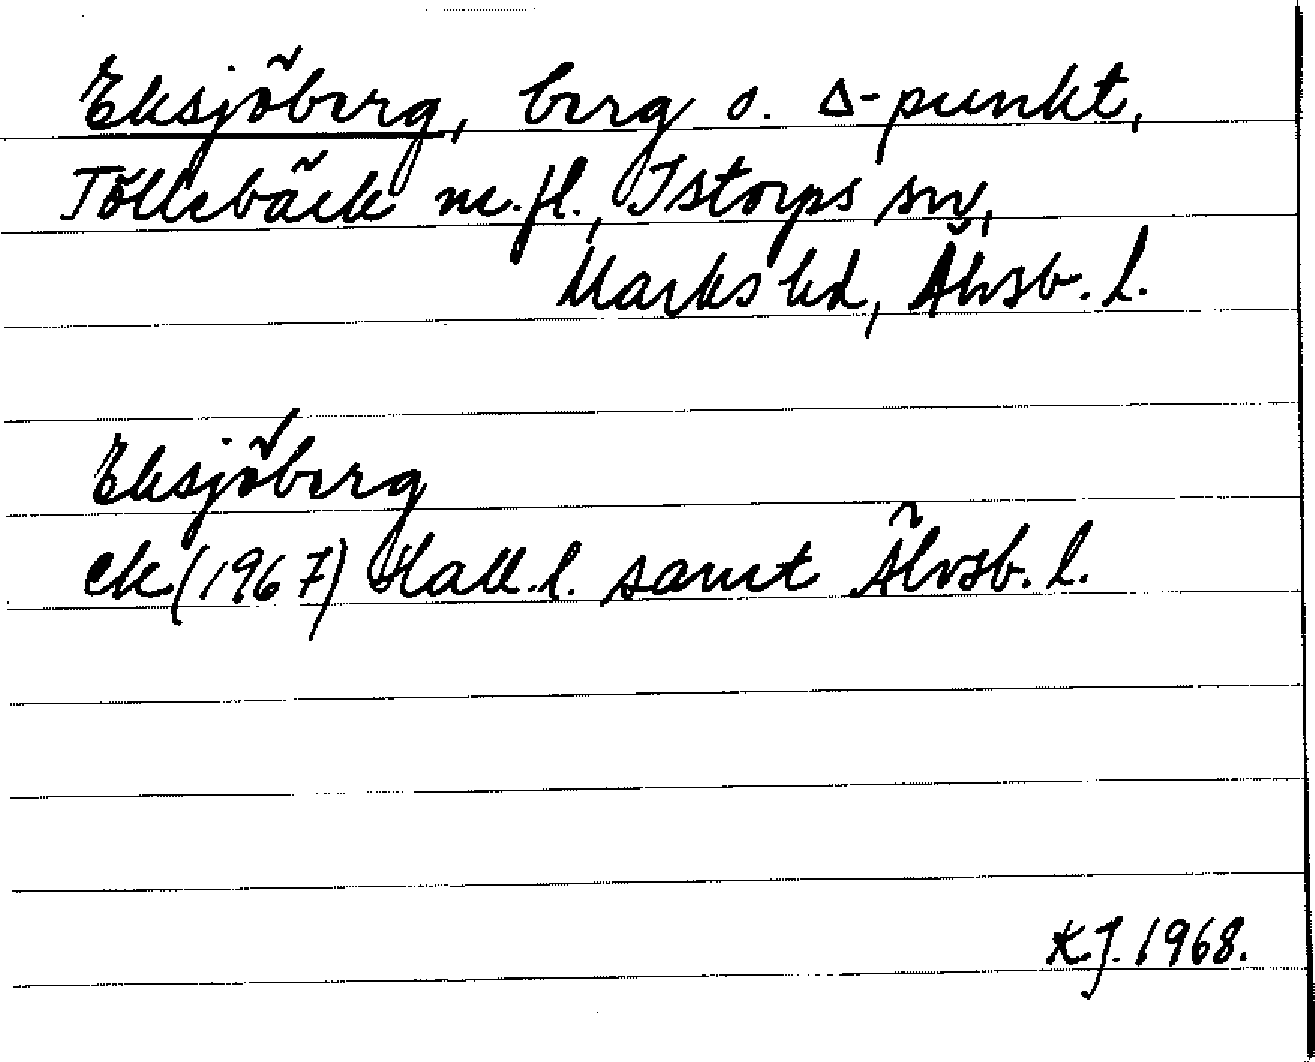 Eksjöberg, berg o. Δ-punkt,
Töllebäck m.fl., Istorps sn,
Marks hd, Älvsb. l.
Eksjöberg
ek (1967) Hall.l. samt Älvsb. l.
K.J. 1968.